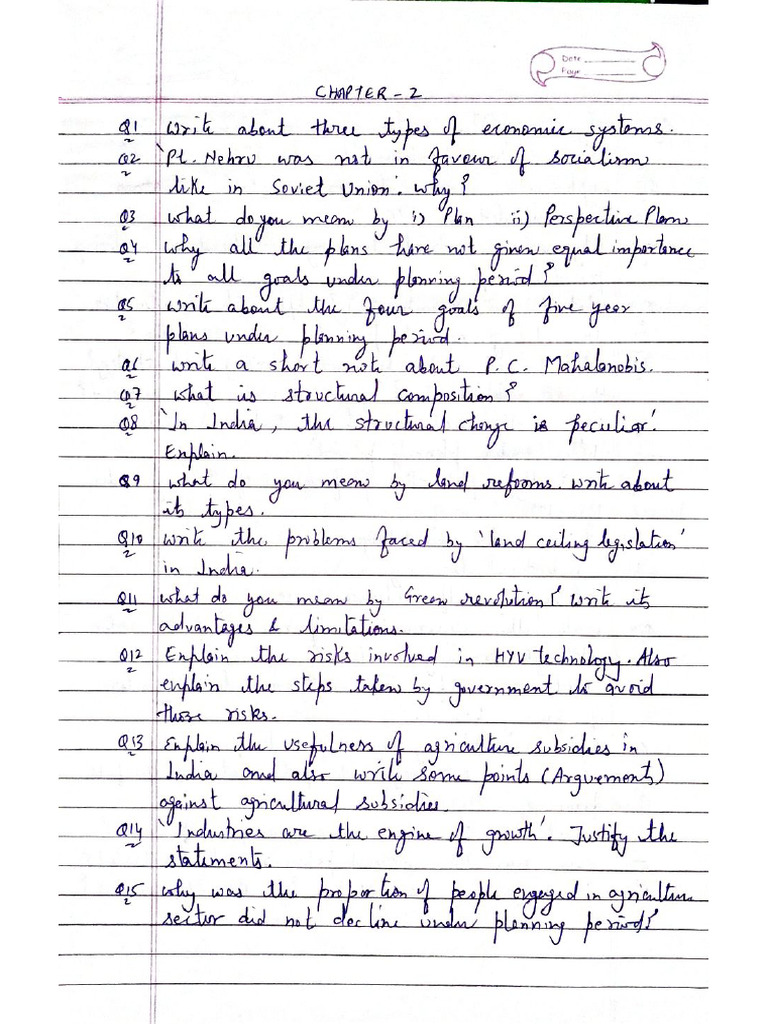 Date
Page
CHAPTER - 2
Q1 Write about three types of economic systems.
Q2 'Pt. Nehru was not in favour of socialism
like in Soviet Union'. Why?
Q3 What do you mean by i) Plan ii) Perspective Plan
Q4 Why all the plans have not given equal importance
to all goals under planning period?
Q5 Write about the four goals of five year
plans under planning period.
Q6 Write a short not about P.C. Mahalanobis.
Q7 What is structural composition?
Q8 'In India, the structural change is peculiar'.
Explain.
Q9 What do you mean by land reforms. Write about
its types.
Q10 Write the problems faced by 'land ceiling legislation'
in India.
Q11 What do you mean by Green revolution? Write its
advantages & limitations.
Q12 Explain the risks involved in HYV technology. Also
explain the steps taken by government to avoid
those risks.
Q13 Explain the usefulness of agriculture subsidies in
India and also write some points (Arguements)
against agricultural subsidies.
Q14 'Industries are the engine of growth'. Justify the
statements.
Q15 Why was the proportion of people engaged in agriculture
sector did not decline under planning period?